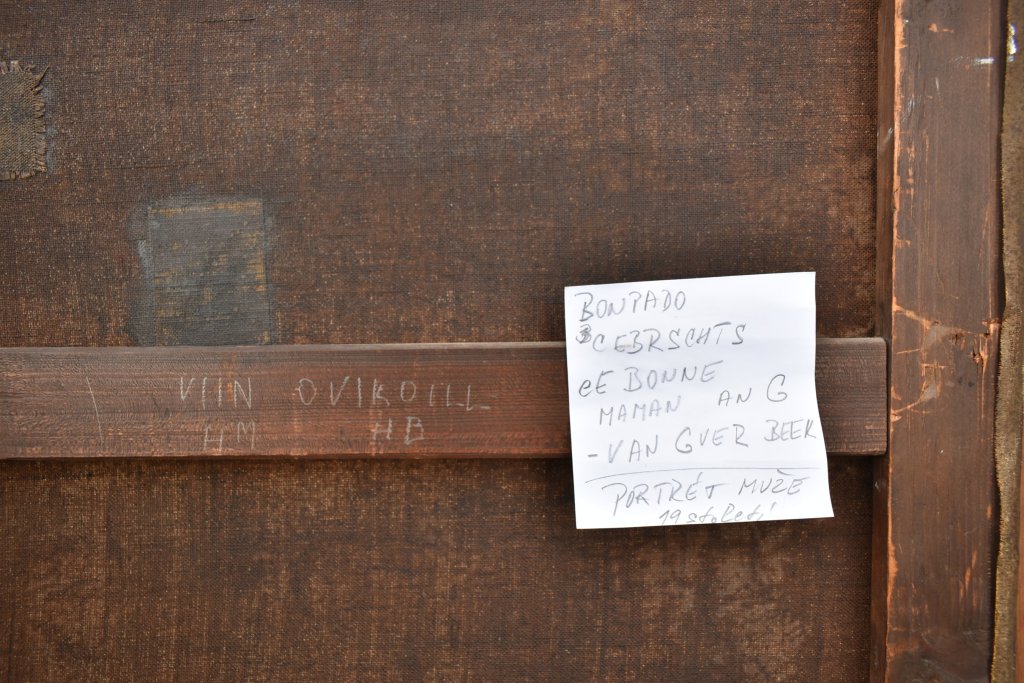 VIIN OVIKOILL
HM HB
BONPADO
CEBRSCHTS
eE BONNE
MAMAN AN G
- VAN GVER BEEK
PORTRÉT MUŽE
19 století